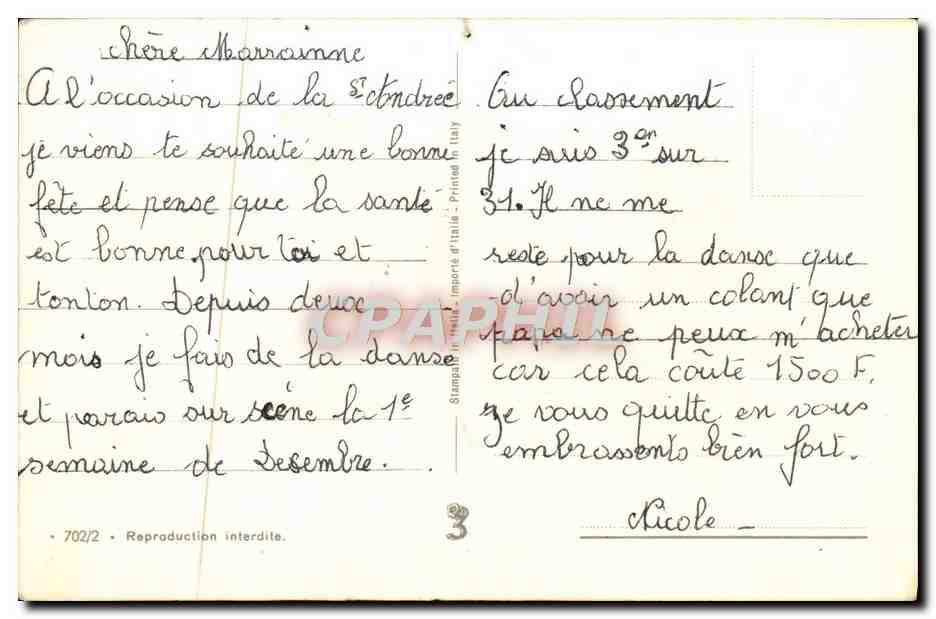 chère Marrainne
A l'occasion de la St Andrée
je viens te souhaité une bonne
fête et pense que la santé
est bonne pour toi et
tonton. Depuis deux
mois je fais de la danse
et parais sur scène la 1e
semaine de Desembre.
702/2 • Reproduction interdite.
Stampato in Italia - Importé d'Italie - Printed in Italy
CPAPHIL
3
Au classement
je suis 3em sur
31. Il ne me
reste pour la danse que
d'avoir un colant que
papa ne peux m'acheter
car cela coûte 1500 F.
Je vous quitte en vous
embrassents bien fort.
Nicole -